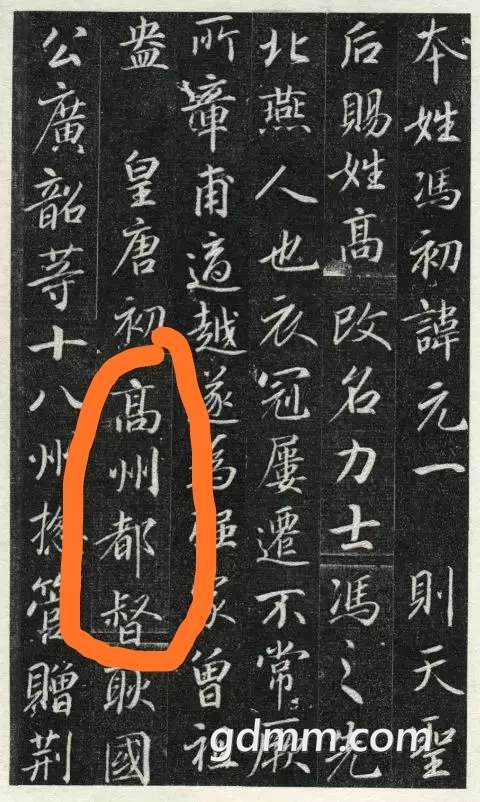 本姓馮初諱元一 則天聖
后賜姓髙改名力士馮之先
北燕人也衣冠屢遷不常厥
所章甫適越遂為强家曾祖
盎 皇唐初髙州都督耿國
公廣韶等十八州揔管贈荊
gdmm.com